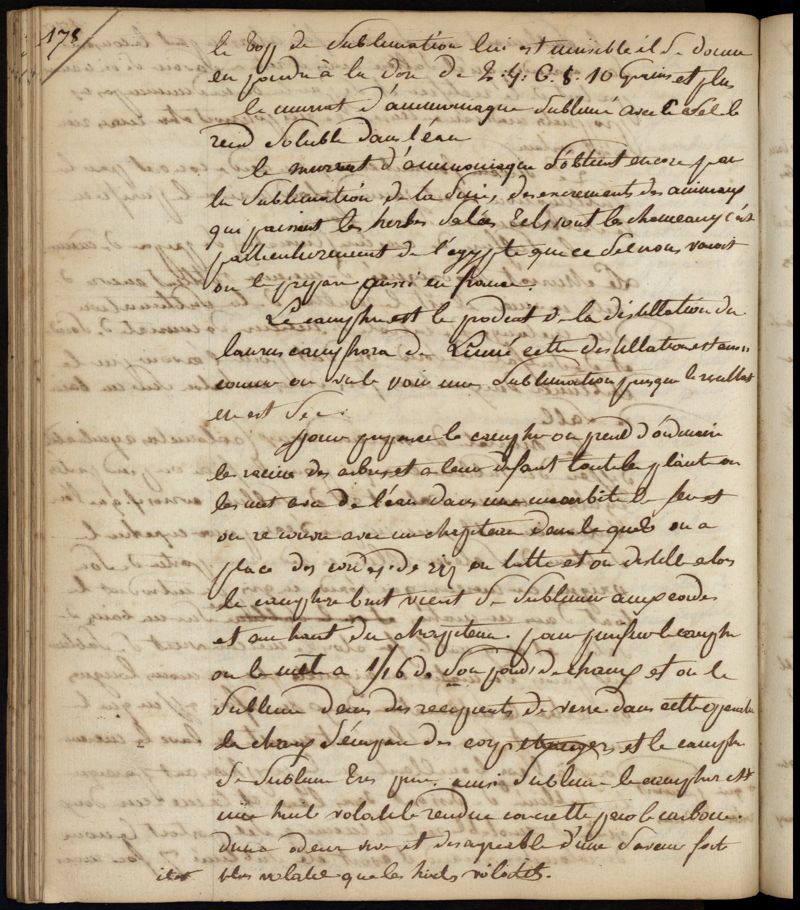 178
le Eoff de Sublimation lui est nuisible il Se donne
en poudre à la dose de 2. 4. 6. 8. 10 Grains et plus
le muriat d'ammoniaque Sublimé avec le Sel le
rend Soluble dans l'eau
le muriat d'ammoniaque S'obtient encore par
la Sublimation de la Suie, des excrements des animaux
qui paissent les herbes Salées tels sont les chameaux c'est
particulierement de l'egypte que ce Sel nous venoit
on le prepare aussi en france.
Le camphre est le produit de la distillation du
laurus camphora de Linné cette distillation est
comme on va le voir une Sublimation puisque le resultat
en est Sec.
pour preparer le camphre on prend d'ordinaire
les racines des arbres et a leur defaut toute la plante on
les met avec de l'eau dans une cucurbite de fer et
on recouvre avec un chapiteau dans lequel on a
place des cordes de riz on lutte et on distille alors
le camphre brut vient Se Sublimer aux cordes
et au haut du chapiteau. pour purifier le camphre
on le mele a 1/16 de Son poids de chaux et on le
Sublime dans des recipients de verre dans cette operation
la chaux S'empare des corps etrangers et le camphre
Se Sublime tres pur. ainsi Sublimé le camphre est
une huile volatile rendue concrette par le carbone
d'une odeur vive et desagreable d'une Saveur forte
plus volatile que les huiles volatiles.